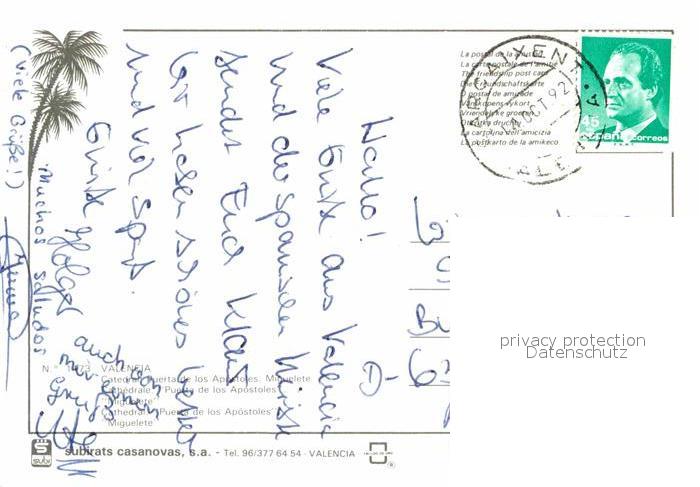 La postal de la amistad
La carte postale de l'amitié
The friendship post card
Die Freundschaftskarte
O postal de amizade
Vänskapens vykort
La cartolina dell'amicizia
La postkarto de la amikeco
OCT. 92
45
España correos
Hallo!
Viele Grüße aus Valencia
und der spanischen Küste
sendet Euch Klaus
Wir haben schönes Wetter
und viel Spaß.
Grüße Holger
auch von
mir einen
Gruß
Muchos saludos
(Viele Grüße!)
privacy protection
Datenschutz
N.º 1073 VALENCIA
Catedral: Puerta de los Apóstoles. Miguelete
Cathédrale: Puerta de los Apóstoles
Miguelete
Cathedral: Puerta de los Apóstoles
Miguelete
subi
subirats casanovas, s.a. - Tel. 96/377 64 54 - VALENCIA